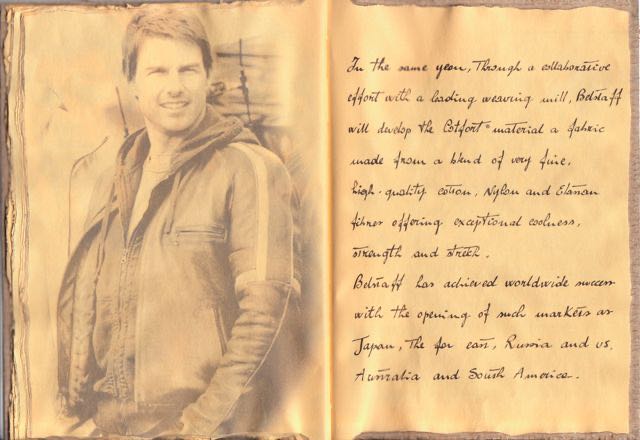 In the same year, Through a collaborative
effort with a leading weaving mill, Belstaff
will develop the Cotfort® material a fabric
made from a blend of very fine,
high-quality cotton, Nylon and Elastan
fibres offering exceptional coolness,
strength and stretch.
Belstaff has achieved worldwide success
with the opening of such markets as
Japan, The far east, Russia and US,
Australia and South America.